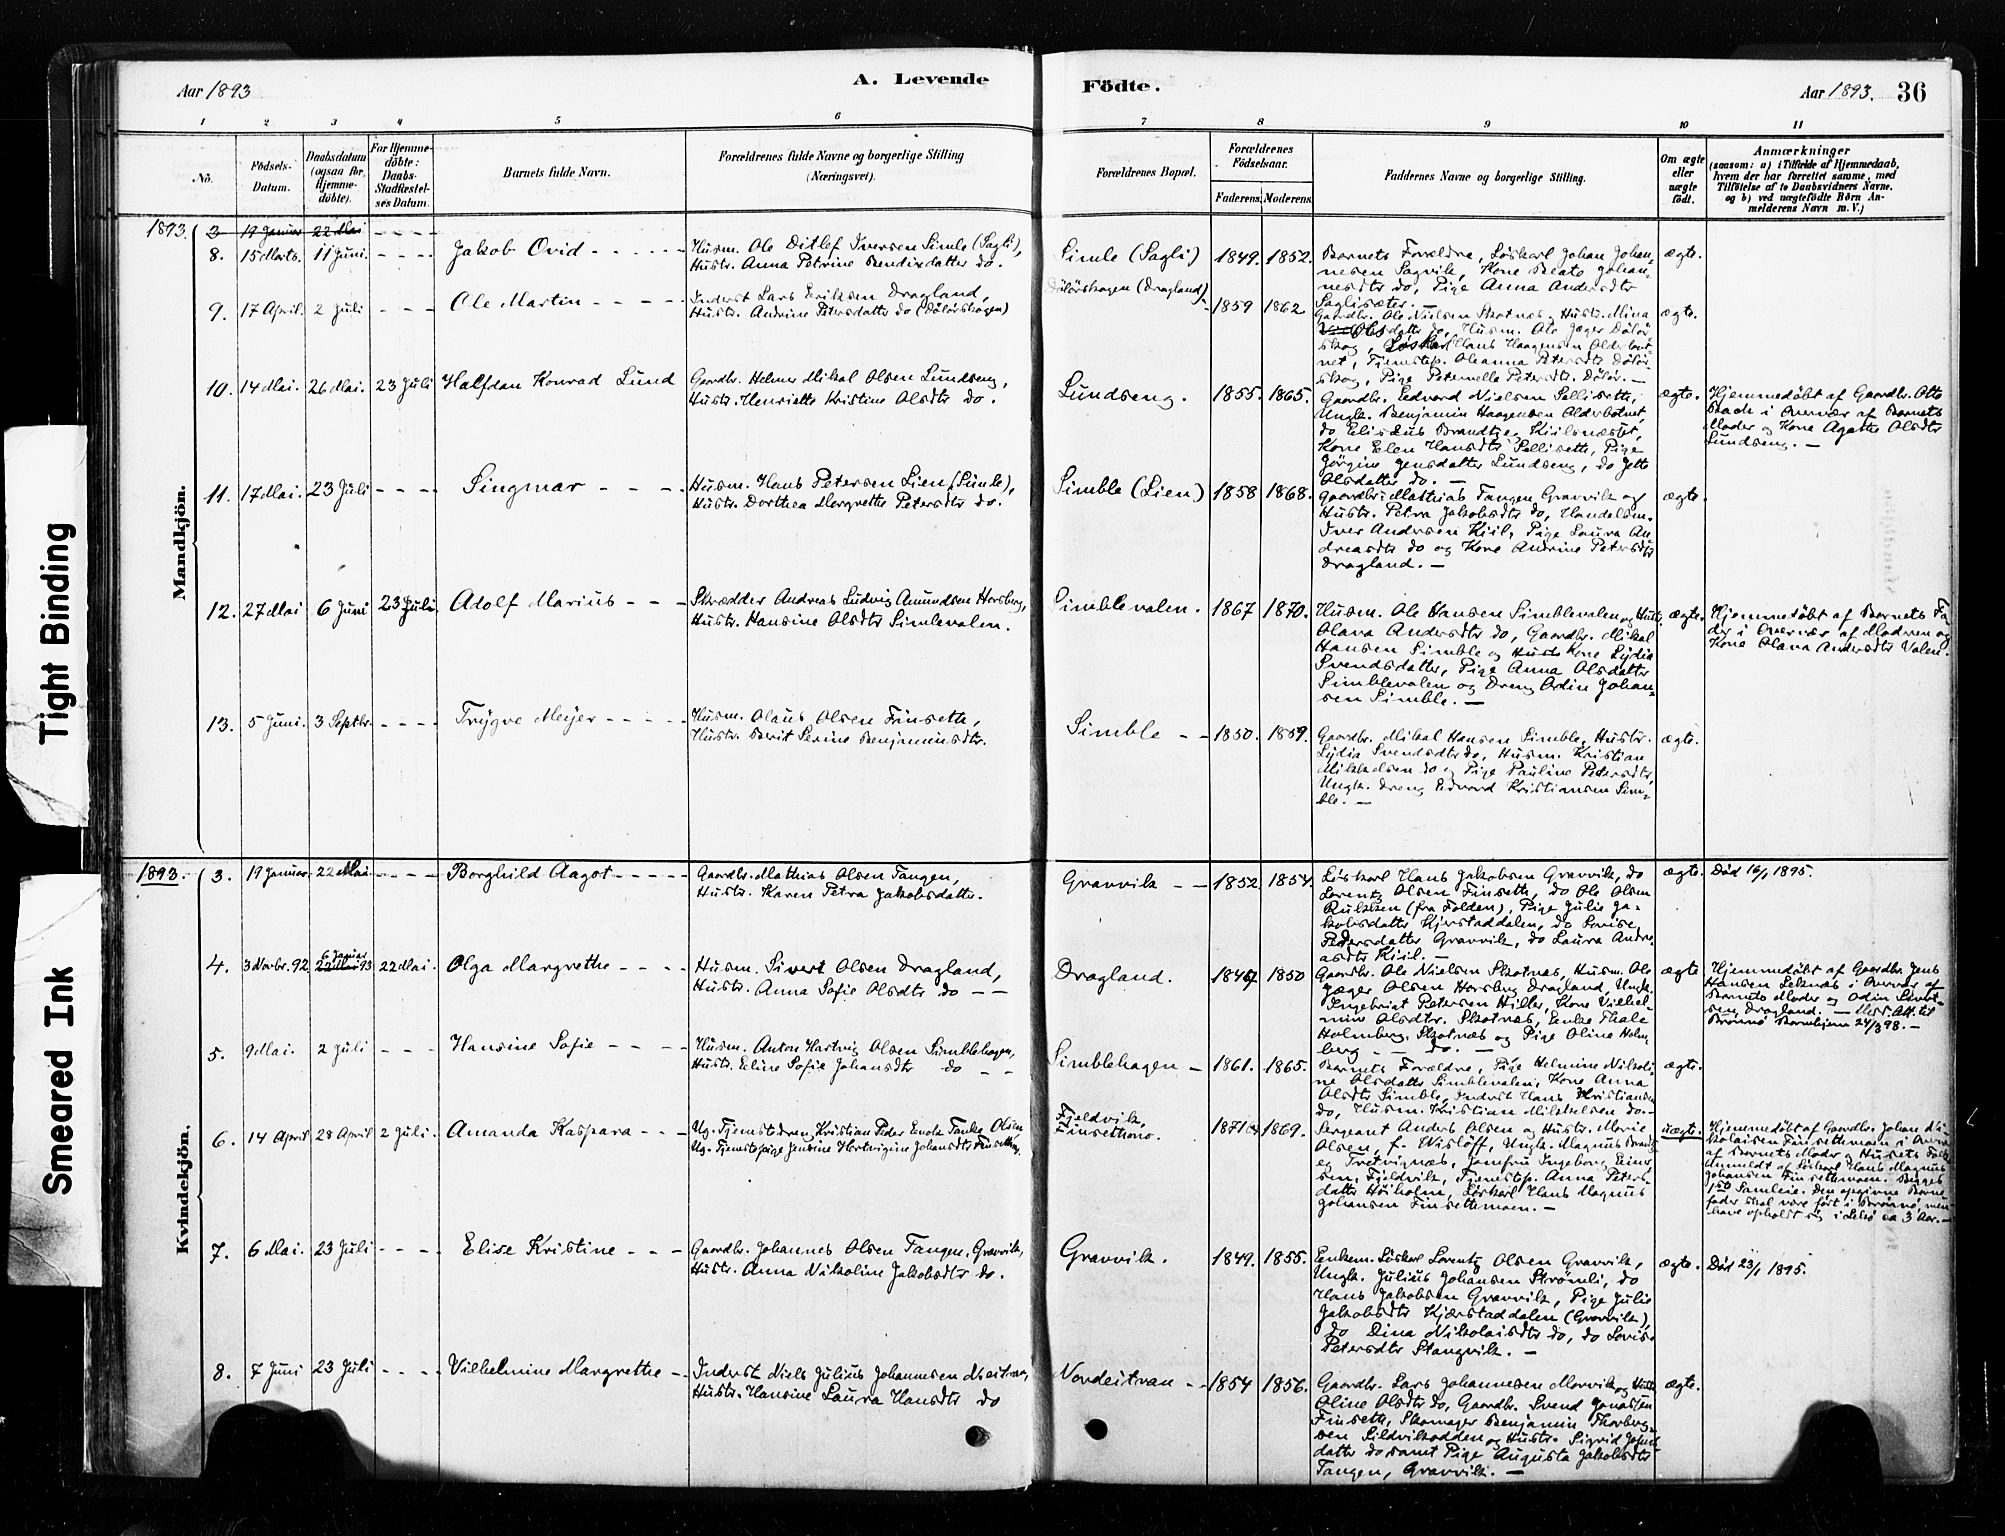 Aar 1893
A. Levende
Födte.
Aar 1893.
36
1 2 3 4 5 6 7 8 9 10 11
No.
Födsels-Datum.
Daabsdatum (ogsaa for Hjemme-døbte).
For Hjemme-døbte: Daabs-Stadfæstel-ses Datum.
Barnets fulde Navn.
Forældrenes fulde Navne og borgerlige Stilling (Næringsvei).
Forældrenes Bopæl.
Forældrenes Fødselsaar.
Faderens. Moderens.
Faddernes Navne og borgerlige Stilling.
Om ægte eller uægte født.
Anmærkninger
(saasom: a) i Tilfælde af Hjemmedaab,
hvem der har forrettet samme, med
Tilføielse af to Daabsvidners Navne.
og b) ved uægtefødte Børn An-
melderens Navn m. V.)
Mandkjön.
1893. 3 19 Januar 22 Mai - - - -
8. 15 Marts. 11 Juni. - - - - Jakob Ovid - - - - -
Husm. Ole Ditlef Iversen Simle (Sagli),
Hustr. Anna Petrine Bendixdatter do.
Simle (Sagli.) 1849. 1852.
Barnets Forældre, Løskarl Johan Johan-
nesen Sagvik, Kone Beate Johan-
nesdtr do, Pige Anna Andersdtr
Saglisæter. —
ægte.
9. 17 April. 2 Juli - - - Ole Martin - - - - -
Inderst Lars Eriksen Dragland,
Hustr. Andrine Petersdatter do
(Dragland) 1859 1862
Gaardbr. Ole Nielsen Skotnæs og Hustr. Mina
Olsdatter do, Husm. Ole Jæger
skog, Løskarl Hans Haagensen Olderbot-
net, Tjenstep. Oleanna Petersdtr
skog, Pige Peternella Petersdtr. —
ægte.
10. 14 Mai. 26 Mai. 23 Juli Halfdan Konrad Lund
Gaardbr. Helmer Mikal Olsen Lundseng,
Hustr. Henriette Kristine Olsdtr do.
Lundseng. 1855. 1865.
Gaardbr. Edvard Nielsen Sellisette,
Ungk. Benjamin Haagensen Olderbotnet,
do Elisæus Brandtzæg, Kiilsnæsset,
Kone Elen Hansdtr Sellisette, Pige
Jörgine Jensdatter Lundseng, do Jette
Olsdatter do. —
ægte.
Hjemmedøbt af Gaardbr. Otto
i Overvær af Barnets
Moder og Kone Agathe Olsdtr
Lundseng. —
11. 17 Mai. 23 Juli - - - - Singmar - - - -
Husm. Hans Petersen Lien (Simle),
Hustr. Dorthea Margrethe Petersdtr do.
Simble (Lien) 1858 1868.
Gaardbr. Mathias Tangen Gravvik og
Hustr. Petra Jakobsdtr do, Handelsm.
Iver Andersen Kiil, Pige Laura An-
dreasdtr do og Kone Andrine Petersdtr
Dragland. —
ægte.
12. 27 Mai 6 Juni 23 Juli. Adolf Marius - - -
Skrædder Andreas Ludvig Amundsen Horsberg,
Hustr. Hansine Olsdtr Simlevalen.
Simblevalen. 1867 1870.
Husm. Ole Hansen Simblevalen og Hustr.
Olava Andersdtr do, Gaardbr. Mikal
Hansen Simble og Kone Lydia
Svendsdatter, Pige Anna Olsdatter
Simblevalen og Dreng Odin Johan-
sen Simble. —
ægte.
Hjemmedøbt af Barnets Fa-
der i Overvær af Moderen og
Kone Olava Andersdtr Valen.
13. 5 Juni. 3 Septbr. - - - - Trygve Meyer - - - - -
Husm. Olaus Olsen Finsette,
Hustr. Berit Serine Benjaminsdtr.
Simble - - 1850. 1859.
Gaardbr. Mikal Hansen Simble, Hustr.
Lydia Svendsdtr do, Husm. Kristian
Mikkelsen do og Pige Pauline Petersdtr,
Ungk. Dreng Edvard Kristiansen Sim-
ble. —
ægte.
Kvindekjön.
1893. 3. 19 Januar. 22 Mai - - - - Borghild Aagot - - - - -
Gaardbr. Mathias Olsen Tangen,
Hustr. Karen Petra Jakobsdatter.
Gravvik - - 1852 1854.
Løskarl Hans Jakobsen Gravvik, do
Lorentz Olsen Finsette, do Ole Olsen
(fra Folden), Pige Julie Ja-
kobsdatter Kjærstaddalen, do Lovise
Pedersdatter Gravvik, do Laura Andre-
asdtr Kiil. —
ægte. Død 16/1 1895.
4. 3 Novbr. 92. 6 Januar 22 Mai 93 22 Mai. Olga Margrethe - - - -
Husm. Sivert Olsen Dragland,
Hustr. Anna Sofie Olsdtr do - -
Dragland. 1847 1850
Gaardbr. Ole Nielsen Skotnæs, Husm. Ole
Jæger Olsen Horsberg Dragland, Ungk.
Ingebrigt Petersen Hiller, Kone Vilhel-
mine Olsdtr. Skotnæs, Enke Thale
Holmberg, Skotnæs og Pige Oline Holm-
berg - - do. —
ægte
Hjemmedøbt af Gaardbr. Jens
Hansen Leknæs i Overvær af
Barnets Moder og Odin Sivert-
sen Dragland. — Att. til
24/3 98. —
5. 9 Mai. 2 Juli - - - Hansine Sofie - - - -
Husm. Anton Hartvig Olsen Simblehagen,
Hustr. Eline Sofie Johansdtr do - -
Simblehagen - 1861. 1865.
Barnets Forældre, Pige Helmine Nikoli-
ne Olsdatter Simblevalen, Kone Anna
Olsdtr Simble, Inderst Hans Kristiansen
do, Husm. Kristian Mikkelsen do. -
ægte.
6. 14 April 28 April 2 Juli. Amanda Kaspara - - -
Ug. Tjenstedreng Kristian Peder Enok Olsen
Ug. Tjenstepige Jensine Hartvigine Johansdtr
Fjeldvik, Finsethmo. 1871 1869.
Sergeant Anders Olsen og Hustr. Marie
Olsen, f. Wisløff, Ungk. Magnus
Jomfru Ingeborg Einer-
sen, Fjeldvik, Tjenstep. Anna Peters-
datter Høiholm, Løskarl Hans Magnus
Johansen Finsethmoen. —
uægte.
Hjemmedøbt af Gaardbr. Johan Ni-
kolaisen Finsethmoen i Overvær
af Barnets Moder og Husets Folk.
Anmeldt af Løskarl Hans Magnus
Johansen Finsethmoen. Begges
1ste Samleie. Den opgivne Barne-
fader skal være født i Brønnø, men
have opholdt sig i Lekø ca 3 Aar. —
7. 6 Mai. 23 Juli - - - - Elise Kristine - - -
Gaardbr. Johannes Olsen Tangen, Gravvik,
Hustr. Anna Nikoline Jakobsdtr do.
Gravvik. 1849. 1855.
Enkem. Løskarl Lorentz Olsen Gravvik,
Ungk. Julius Johansen Strömli, do
Hans Jakobsen Gravvik, Pige Julie
Jakobsdtr Kjærstaddalen (Gravvik),
do Dina Nikolaisdtr do, do Lovise
Petersdtr Stangvik. —
ægte. Død 23/1 1895.
8. 7 Juni 23 Juli - - - - Vilhelmine Margrethe - -
Inderst Niels Julius Johannesen
Hustr. Hansine Laura Hansdtr do
- - 1854 1856.
Gaardbr. Lars Johannesen Morvik og Hustr.
Oline Olsdtr do, Gaardbr. Svend Jonassen
Finseth, Skomager Benjamin Thorberg-
sen Sildvikodden og Hustr. Sigrid
datter do samt Pige Augusta Jakobsdtr
Tangen, Gravvik. —
ægte.
Tight Binding
Smeared Ink